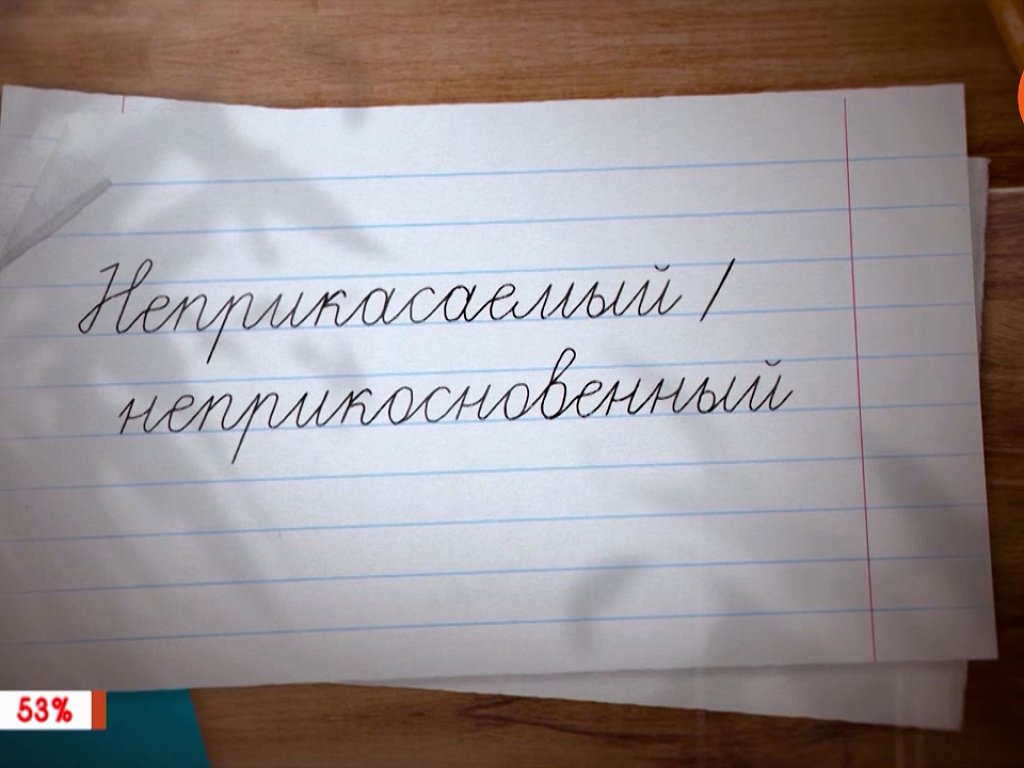 Неприкасаемый /
неприкосновенный
53%